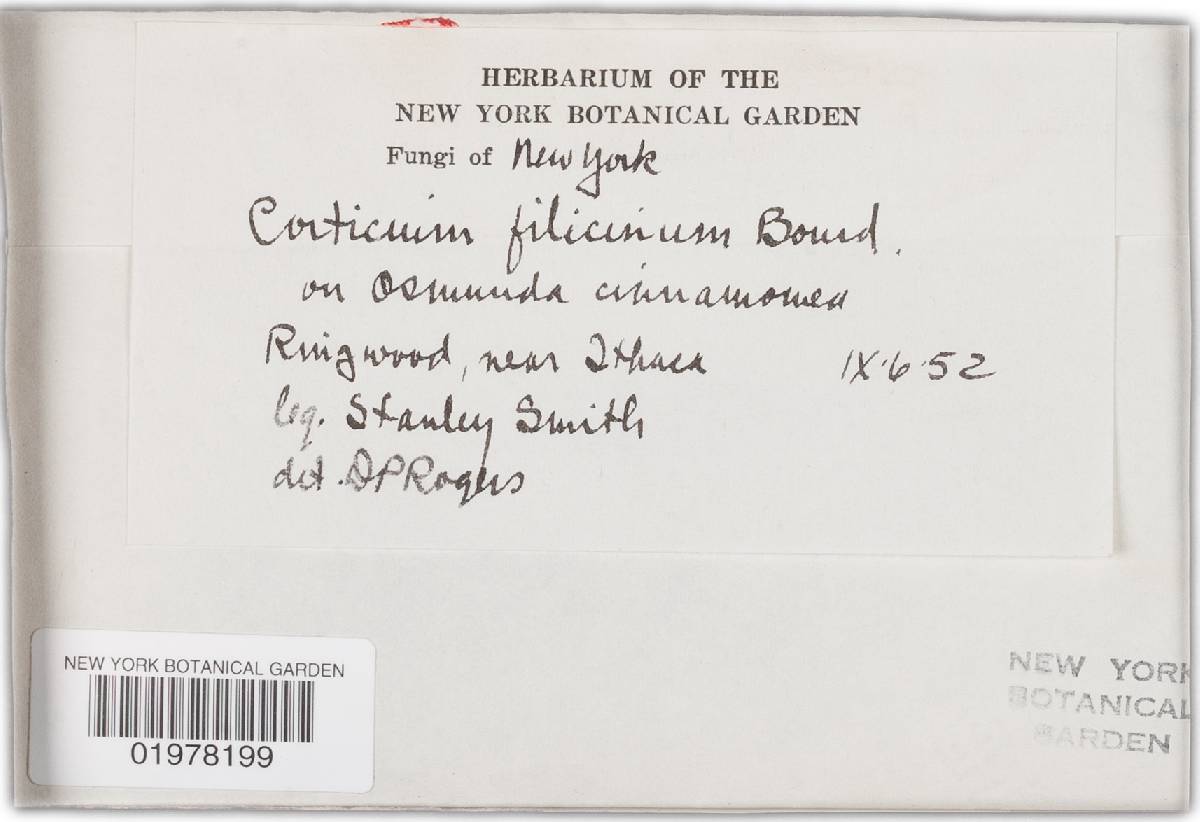 HERBARIUM OF THE
NEW YORK BOTANICAL GARDEN
Fungi of New York
Corticium filicinum Bourd.
on Osmunda cinnamomea
Ringwood, near Ithaca IX·6·52
leg. Stanley Smith
det. DPRogers
NEW YORK BOTANICAL GARDEN
01978199
NEW YORK
BOTANICAL
GARDEN